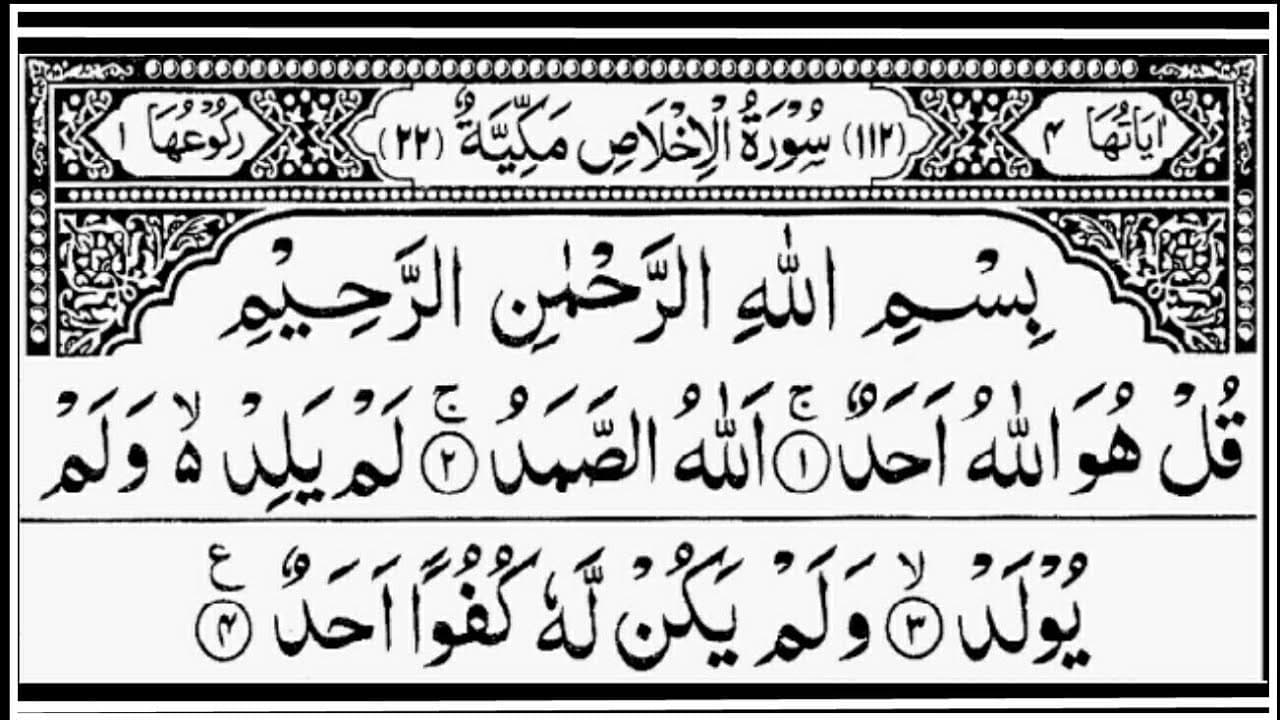 اٰیَاتُهَا ۴ (۱۱۲) سُوْرَةُ الْاِخْلَاصِ مَكِّیَّةٌ (۲۲) رُكُوْعُهَا ۱
بِسْمِ اللّٰهِ الرَّحْمٰنِ الرَّحِیْمِ
قُلْ هُوَ اللّٰهُ اَحَدٌ ۚ‏﴿۱﴾ اَللّٰهُ الصَّمَدُ ۚ‏﴿۲﴾ لَمْ یَلِدْ ۙ۬ وَلَمْ
یُوْلَدْ ۙ‏﴿۳﴾ وَلَمْ یَكُنْ لَّهٗ كُفُوًا اَحَدٌ ﴿۴﴾ ع